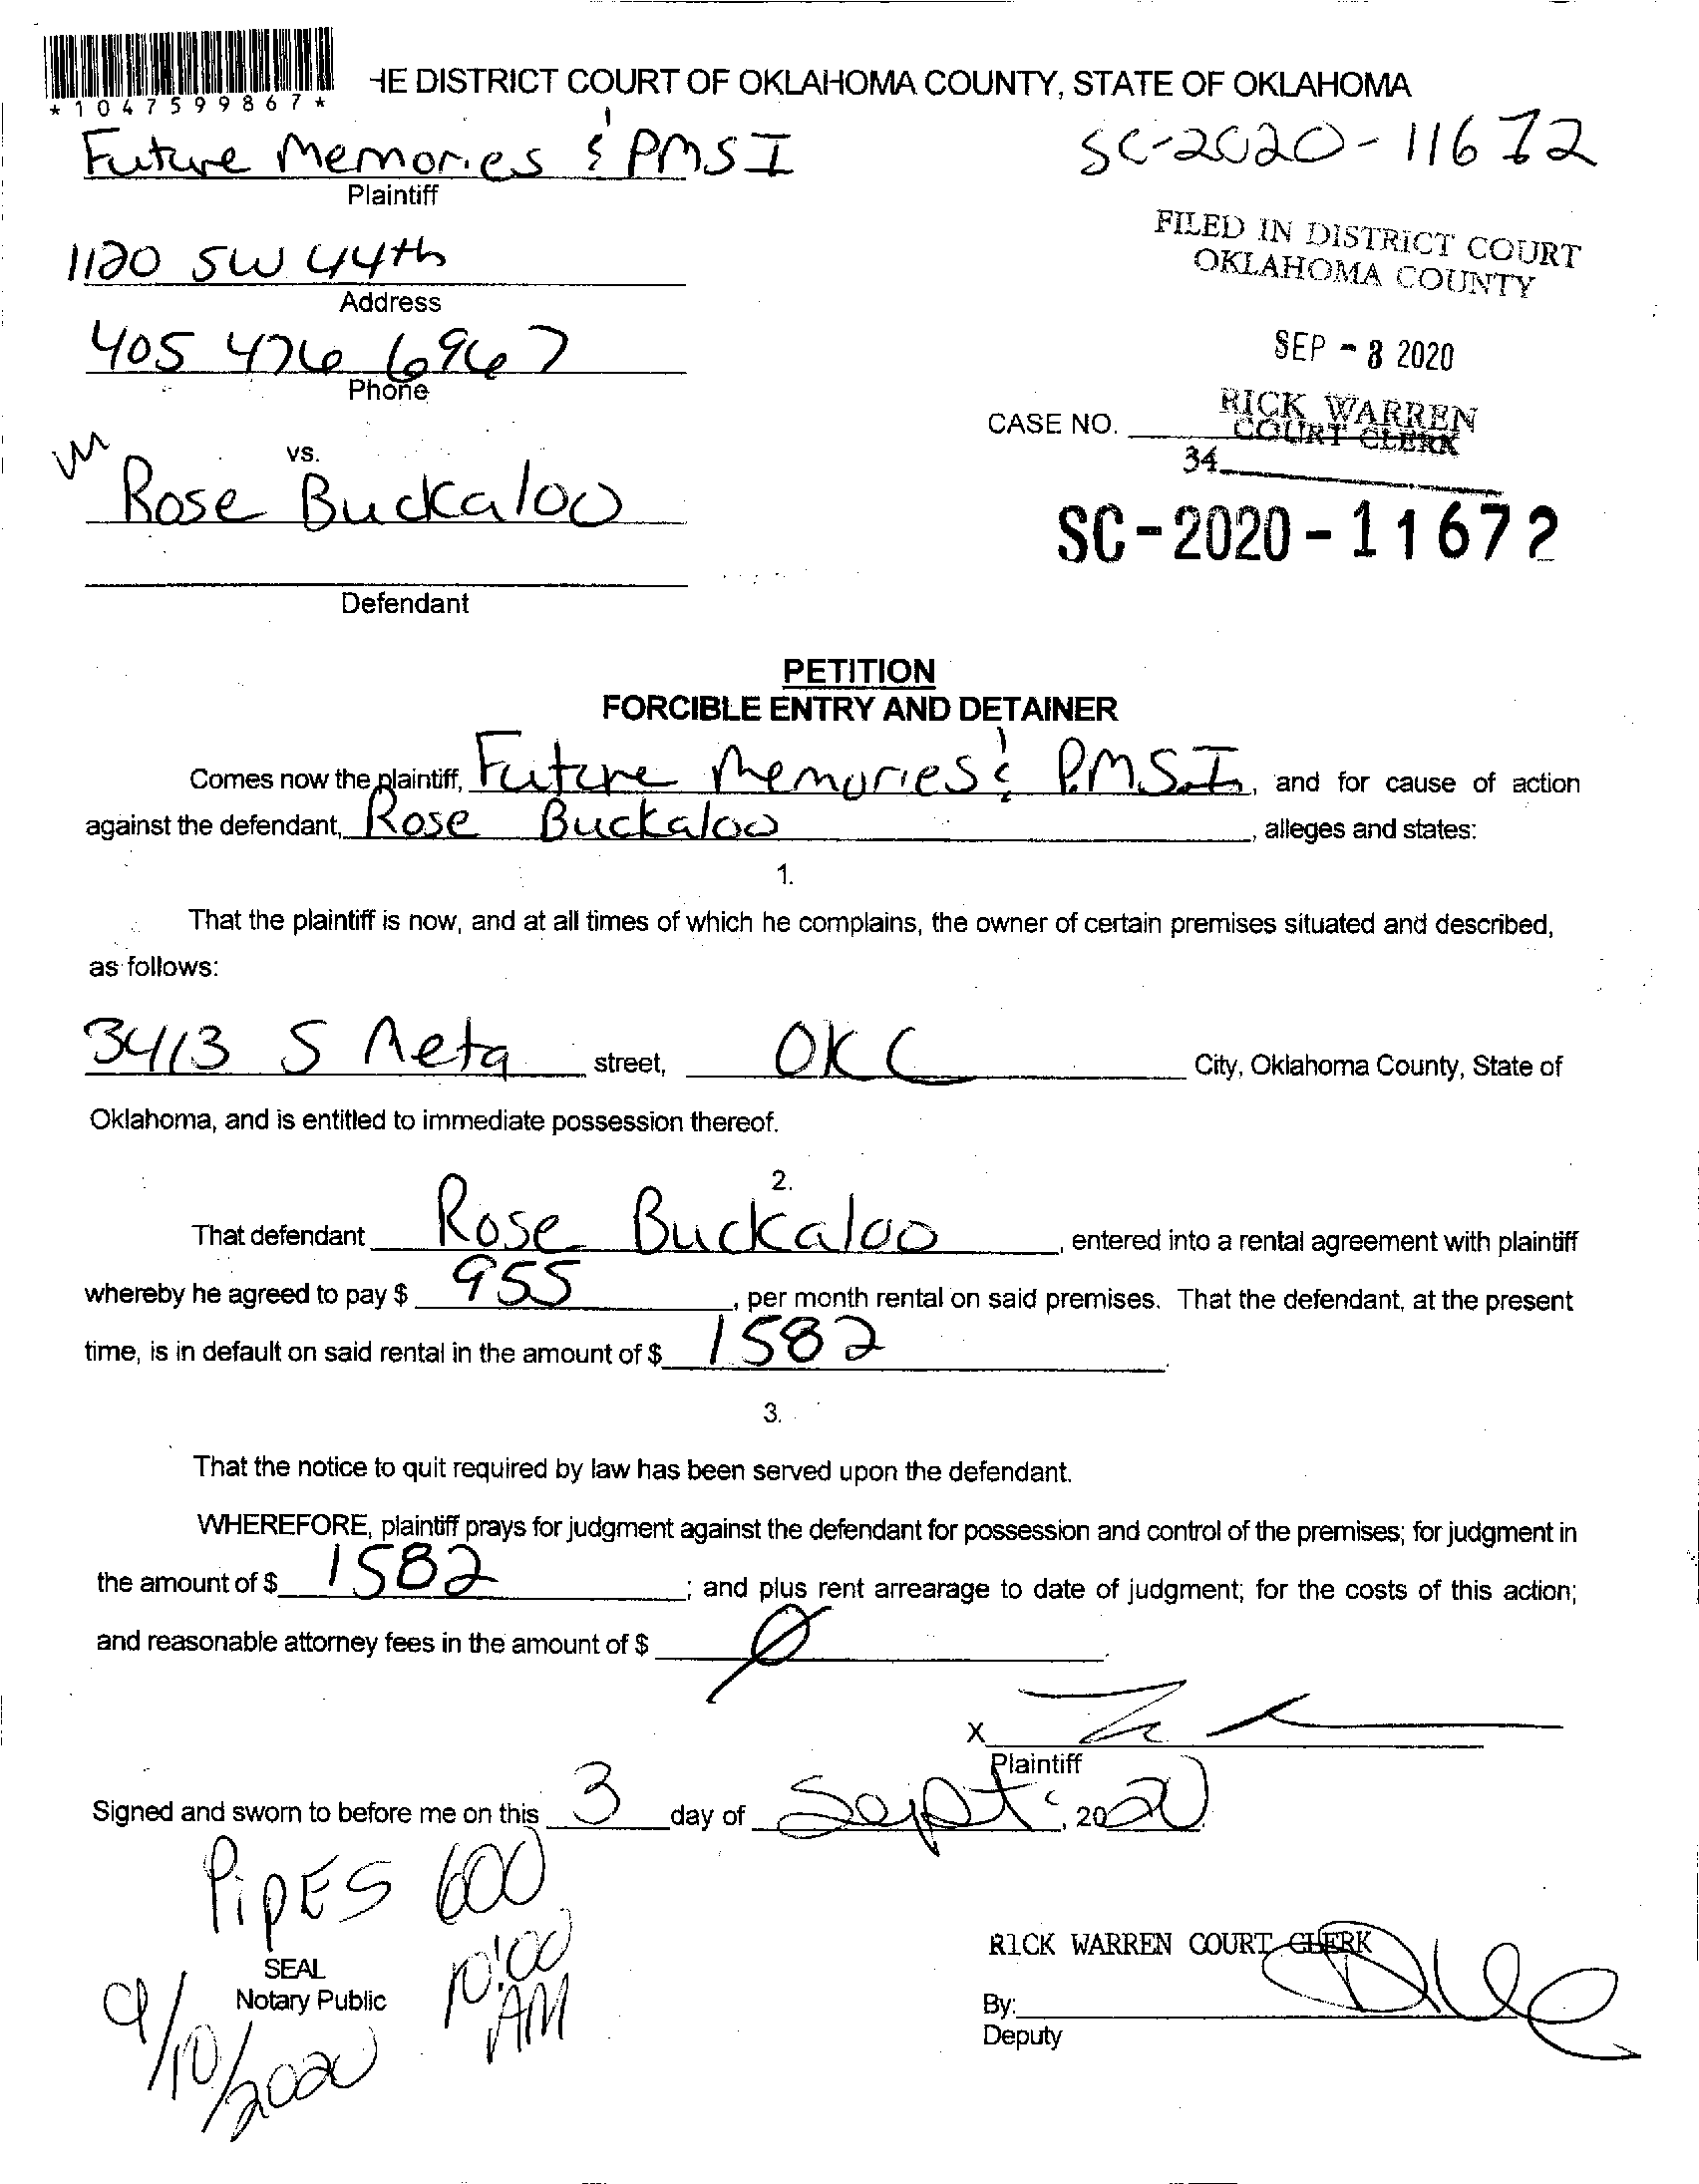 *1047599867*
HE DISTRICT COURT OF OKLAHOMA COUNTY, STATE OF OKLAHOMA
Future Memories & PMSI
SC-2020-11672
Plaintiff
1120 SW 44th
Address
FILED IN DISTRICT COURT
OKLAHOMA COUNTY
405 476 6967
Phone
SEP - 8 2020
RICK WARREN
COURT CLERK
CASE NO.
34
vs.
Rose Buckaloo
SC-2020-11672
Defendant
PETITION
FORCIBLE ENTRY AND DETAINER
Comes now the plaintiff, Future Memories & P.M.S.I., and for cause of action
against the defendant, Rose Buckaloo, alleges and states:
1.
That the plaintiff is now, and at all times of which he complains, the owner of certain premises situated and described,
as follows:
3413 S Meta street, OKC City, Oklahoma County, State of
Oklahoma, and is entitled to immediate possession thereof.
2.
That defendant Rose Buckaloo, entered into a rental agreement with plaintiff
whereby he agreed to pay $ 955, per month rental on said premises. That the defendant, at the present
time, is in default on said rental in the amount of $ 1582.
3.
That the notice to quit required by law has been served upon the defendant.
WHEREFORE, plaintiff prays for judgment against the defendant for possession and control of the premises; for judgment in
the amount of $ 1582; and plus rent arrearage to date of judgment; for the costs of this action;
and reasonable attorney fees in the amount of $ 0.
X
Plaintiff
Signed and sworn to before me on this 3 day of Sept, 2020.
PIPES 600
10:00 AM
SEAL
Notary Public
9/10/2020
RICK WARREN COURT CLERK
By:
Deputy